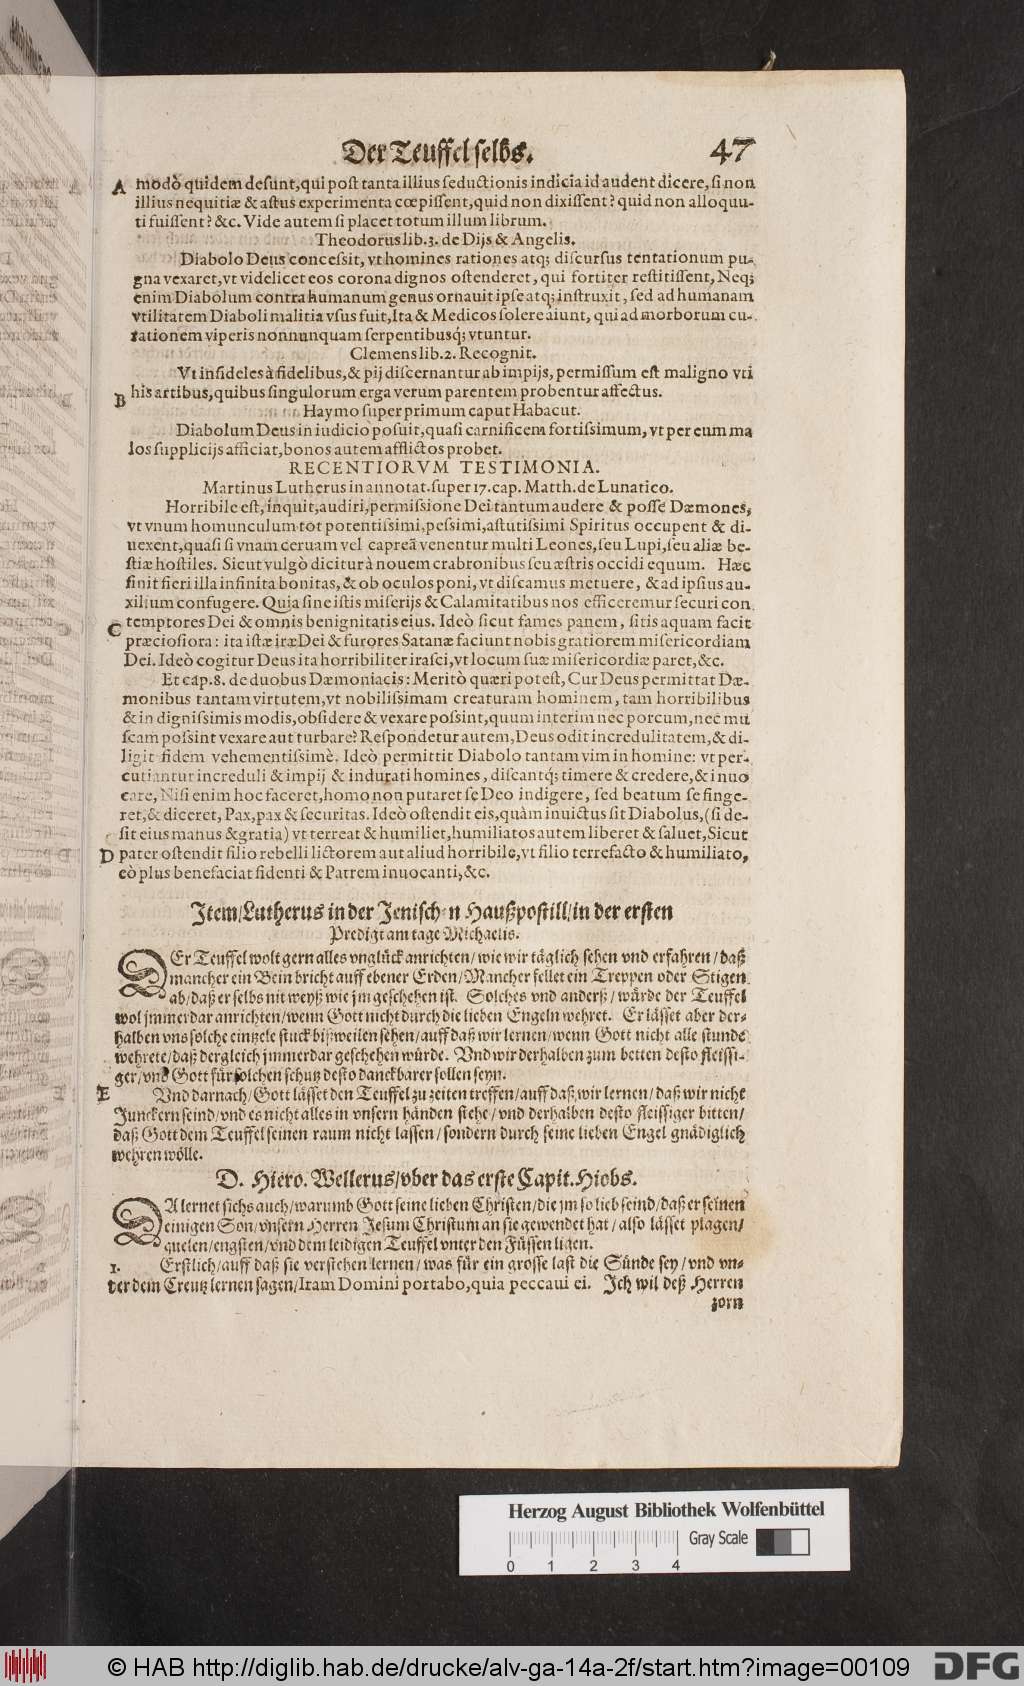 Der Teuffel selbs. 47
A modò quidem desunt, qui post tanta illius seductionis indicia id audent dicere, si non
illius nequitiæ & astus experimenta cœpissent, quid non dixissent? quid non alloquu-
ti fuissent? &c. Vide autem si placet totum illum librum.
Theodorus lib. 3. de Dijs & Angelis.
Diabolo Deus concessit, vt homines rationes atq; discursus tentationum pu-
gna vexaret, vt videlicet eos corona dignos ostenderet, qui fortiter restitissent, Neq;
enim Diabolum contra humanum genus ornauit ipse atq; instruxit, sed ad humanam
vtilitatem Diaboli malitia vsus fuit, Ita & Medicos solere aiunt, qui ad morborum cu-
rationem viperis nonnunquam serpentibusq; vtuntur.
Clemens lib. 2. Recognit.
Vt infideles à fidelibus, & pij discernantur ab impijs, permissum est maligno vti
B his artibus, quibus singulorum erga verum parentem probentur affectus.
Haymo super primum caput Habacut.
Diabolum Deus in iudicio posuit, quasi carnificem fortissimum, vt per eum ma
los supplicijs afficiat, bonos autem afflictos probet.
RECENTIORVM TESTIMONIA.
Martinus Lutherus in annotat. super 17. cap. Matth. de Lunatico.
Horribile est, inquit, audiri, permissione Dei tantum audere & posse Dæmones,
vt vnum homunculum tot potentissimi, pessimi, astutissimi Spiritus occupent & di-
uexent, quasi si vnam ceruam vel capreã venentur multi Leones, seu Lupi, seu aliæ be-
stiæ hostiles. Sicut vulgò dicitur à nouem crabronibus seu æstris occidi equum. Hæc
finit fieri illa infinita bonitas, & ob oculos poni, vt discamus metuere, & ad ipsius au-
xilium confugere. Quia sine istis miserijs & Calamitatibus nos efficeremur securi con
C temptores Dei & omnis benignitatis eius. Ideò sicut fames panem, sitis aquam facit
præciosiora: ita istæ iræ Dei & furores Satanæ faciunt nobis gratiorem misericordiam
Dei. Ideò cogitur Deus ita horribiliter irasci, vt locum suæ misericordiæ paret, &c.
Et cap. 8. de duobus Dæmoniacis: Meritò quæri potest, Cur Deus permittat Dæ-
monibus tantam virtutem, vt nobilissimam creaturam hominem, tam horribilibus
& in dignissimis modis, obsidere & vexare possint, quum interim nec porcum, nec mu
scam possint vexare aut turbare? Respondetur autem, Deus odit incredulitatem, & di-
ligit fidem vehementissimè. Ideò permittit Diabolo tantam vim in homine: vt per-
cutiantur increduli & impij & indurati homines, discantq; timere & credere, & inuo
care, Nisi enim hoc faceret, homo non putaret se Deo indigere, sed beatum se finge-
ret, & diceret, Pax, pax & securitas. Ideò ostendit eis, quàm inuictus sit Diabolus, (si de-
sit eius manus & gratia) vt terreat & humiliet, humiliatos autem liberet & saluet, Sicut
D pater ostendit filio rebelli lictorem aut aliud horribile, vt filio terrefacto & humiliato,
eò plus benefaciat fidenti & Patrem inuocanti, &c.
Item/ Lutherus in der Jenischen Haußpostill/ in der ersten
Predigt am tage Michaelis.
DEr Teuffel wolt gern alles vnglück anrichten/ wie wir täglich sehen vnd erfahren/ daß
mancher ein Bein bricht auff ebener Erden/ Mancher fellet ein Treppen oder Stigen
ab/ daß er selbs nit weyß wie jm geschehen ist. Solches vnd anderß/ würde der Teuffel
wol jmmerdar anrichten/ wenn Gott nicht durch die lieben Engeln wehret. Er lässet aber der-
halben vns solche eintzele stuck bißweilen sehen/ auff daß wir lernen/ wenn Gott nicht alle stunde
wehrete/ daß dergleich jmmerdar geschehen würde. Vnd wir derhalben zum betten desto fleissi-
ger/ vnd Gott für solchen schutz desto danckbarer sollen seyn.
E Vnd darnach/ Gott lässet den Teuffel zu zeiten treffen/ auff daß wir lernen/ daß wir nicht
Junckern seind/ vnd es nicht alles in vnsern händen stehe/ vnd derhalben desto fleissiger bitten/
daß Gott dem Teuffel seinen raum nicht lassen/ sondern durch seine lieben Engel gnädiglich
wehren wölle.
D. Hiero. Wellerus/ vber das erste Capit. Hiobs.
DA lernet sichs auch/ warumb Gott seine lieben Christen/ die jm so lieb seind/ daß er seinen
einigen Son/ vnsern Herren Jesum Christum an sie gewendet hat/ also lässet plagen/
quelen/ engsten/ vnd dem leidigen Teuffel vnter den Füssen ligen.
1. Erstlich/ auff daß sie verstehen lernen/ was für ein grosse last die Sünde sey/ vnd vn-
der dem Creutz lernen sagen/ Iram Domini portabo, quia peccaui ei. Ich wil deß Herren
zorn
Herzog August Bibliothek Wolfenbüttel
Gray Scale
0 1 2 3 4
© HAB http://diglib.hab.de/drucke/alv-ga-14a-2f/start.htm?image=00109 DFG